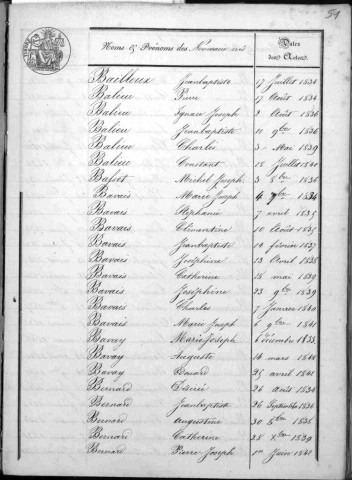 51
Noms & Prénoms des Nouveaux nés Dates des Actes
Bailleux Jeanbaptiste 17 Juillet 1834
Balieu Pierre 17 Août 1834
Balieu Ignace Joseph 2 Août 1836
Balieu Jeanbaptiste 11 9bre 1836
Balieu Charles 3 Mai 1839
Balieu Constant 18 Juillet 1840
Balset Michel Joseph 3 8bre 1836
Bavais Marie Joseph 4 7bre 1834
Bavais Stéphanie 7 avril 1835
Bavais Clémentine 10 Août 1835
Bavais Jeanbaptiste 10 février 1837
Bavais Joséphine 13 Avril 1838
Bavais Catherine 18 mai 1839
Bavais Joséphine 23 9bre 1839
Bavais Charles 7 Janvier 1840
Bavais Marie Joseph 6 9bre 1841
Bavay Marie Joseph 6 décembre 1833
Bavay Auguste 14 mars 1841
Bavay Edouard 25 avril 1841
Bernard Désiré 26 Août 1834
Bernard Jeanbaptiste 26 Septembre 1834
Bernard Augustine 30 8bre 1836
Bernard Catherine 28 Xbre 1839
Bernard Pierre Joseph 1er Juin 1841